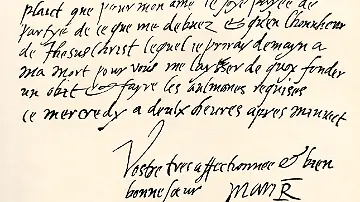 plaict que pour mon ame ie soye payee de
partye de ce que me debuez & quen lhonneur
de Jhesus Christ lequel ie priray demayn a
ma mort pour vous me laysser de quoy fonder
un obit & fayre les aulmones requises
ce mercredy a deulx heures apres minuict
Vostre tres affectionnee & bien
bonne sœur Mari R